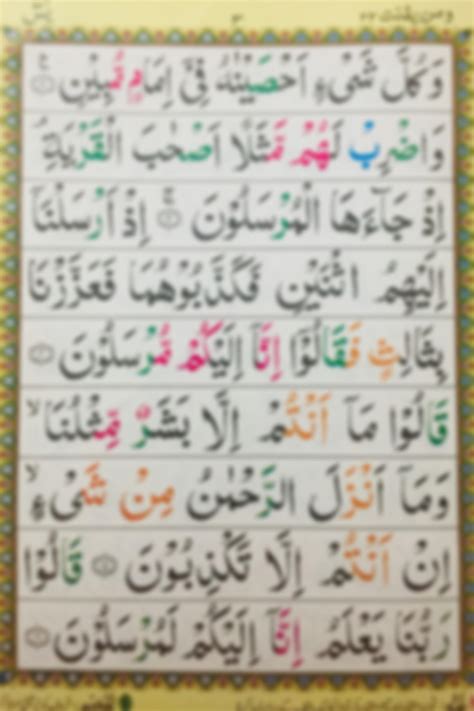 ومن يقنت ٢٢ ٣ يٰسٓ
وَكُلَّ شَیْءٍ اَحْصَیْنٰهُ فِیْۤ اِمَامٍ مُّبِیْنٍ
وَاضْرِبْ لَهُمْ مَّثَلًا اَصْحٰبَ الْقَرْیَةِ
اِذْ جَآءَهَا الْمُرْسَلُوْنَ اِذْ اَرْسَلْنَاۤ
اِلَیْهِمُ اثْنَیْنِ فَكَذَّبُوْهُمَا فَعَزَّزْنَا
بِثَالِثٍ فَقَالُوْۤا اِنَّاۤ اِلَیْكُمْ مُّرْسَلُوْنَ
قَالُوْا مَاۤ اَنْتُمْ اِلَّا بَشَرٌ مِّثْلُنَا
وَمَاۤ اَنْزَلَ الرَّحْمٰنُ مِنْ شَیْءٍ
اِنْ اَنْتُمْ اِلَّا تَكْذِبُوْنَ قَالُوْا
رَبُّنَا یَعْلَمُ اِنَّاۤ اِلَیْكُمْ لَمُرْسَلُوْنَ